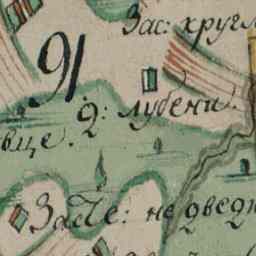 Зас: кругл
91
2: лубени.
вце.
ЗаСе: не двед